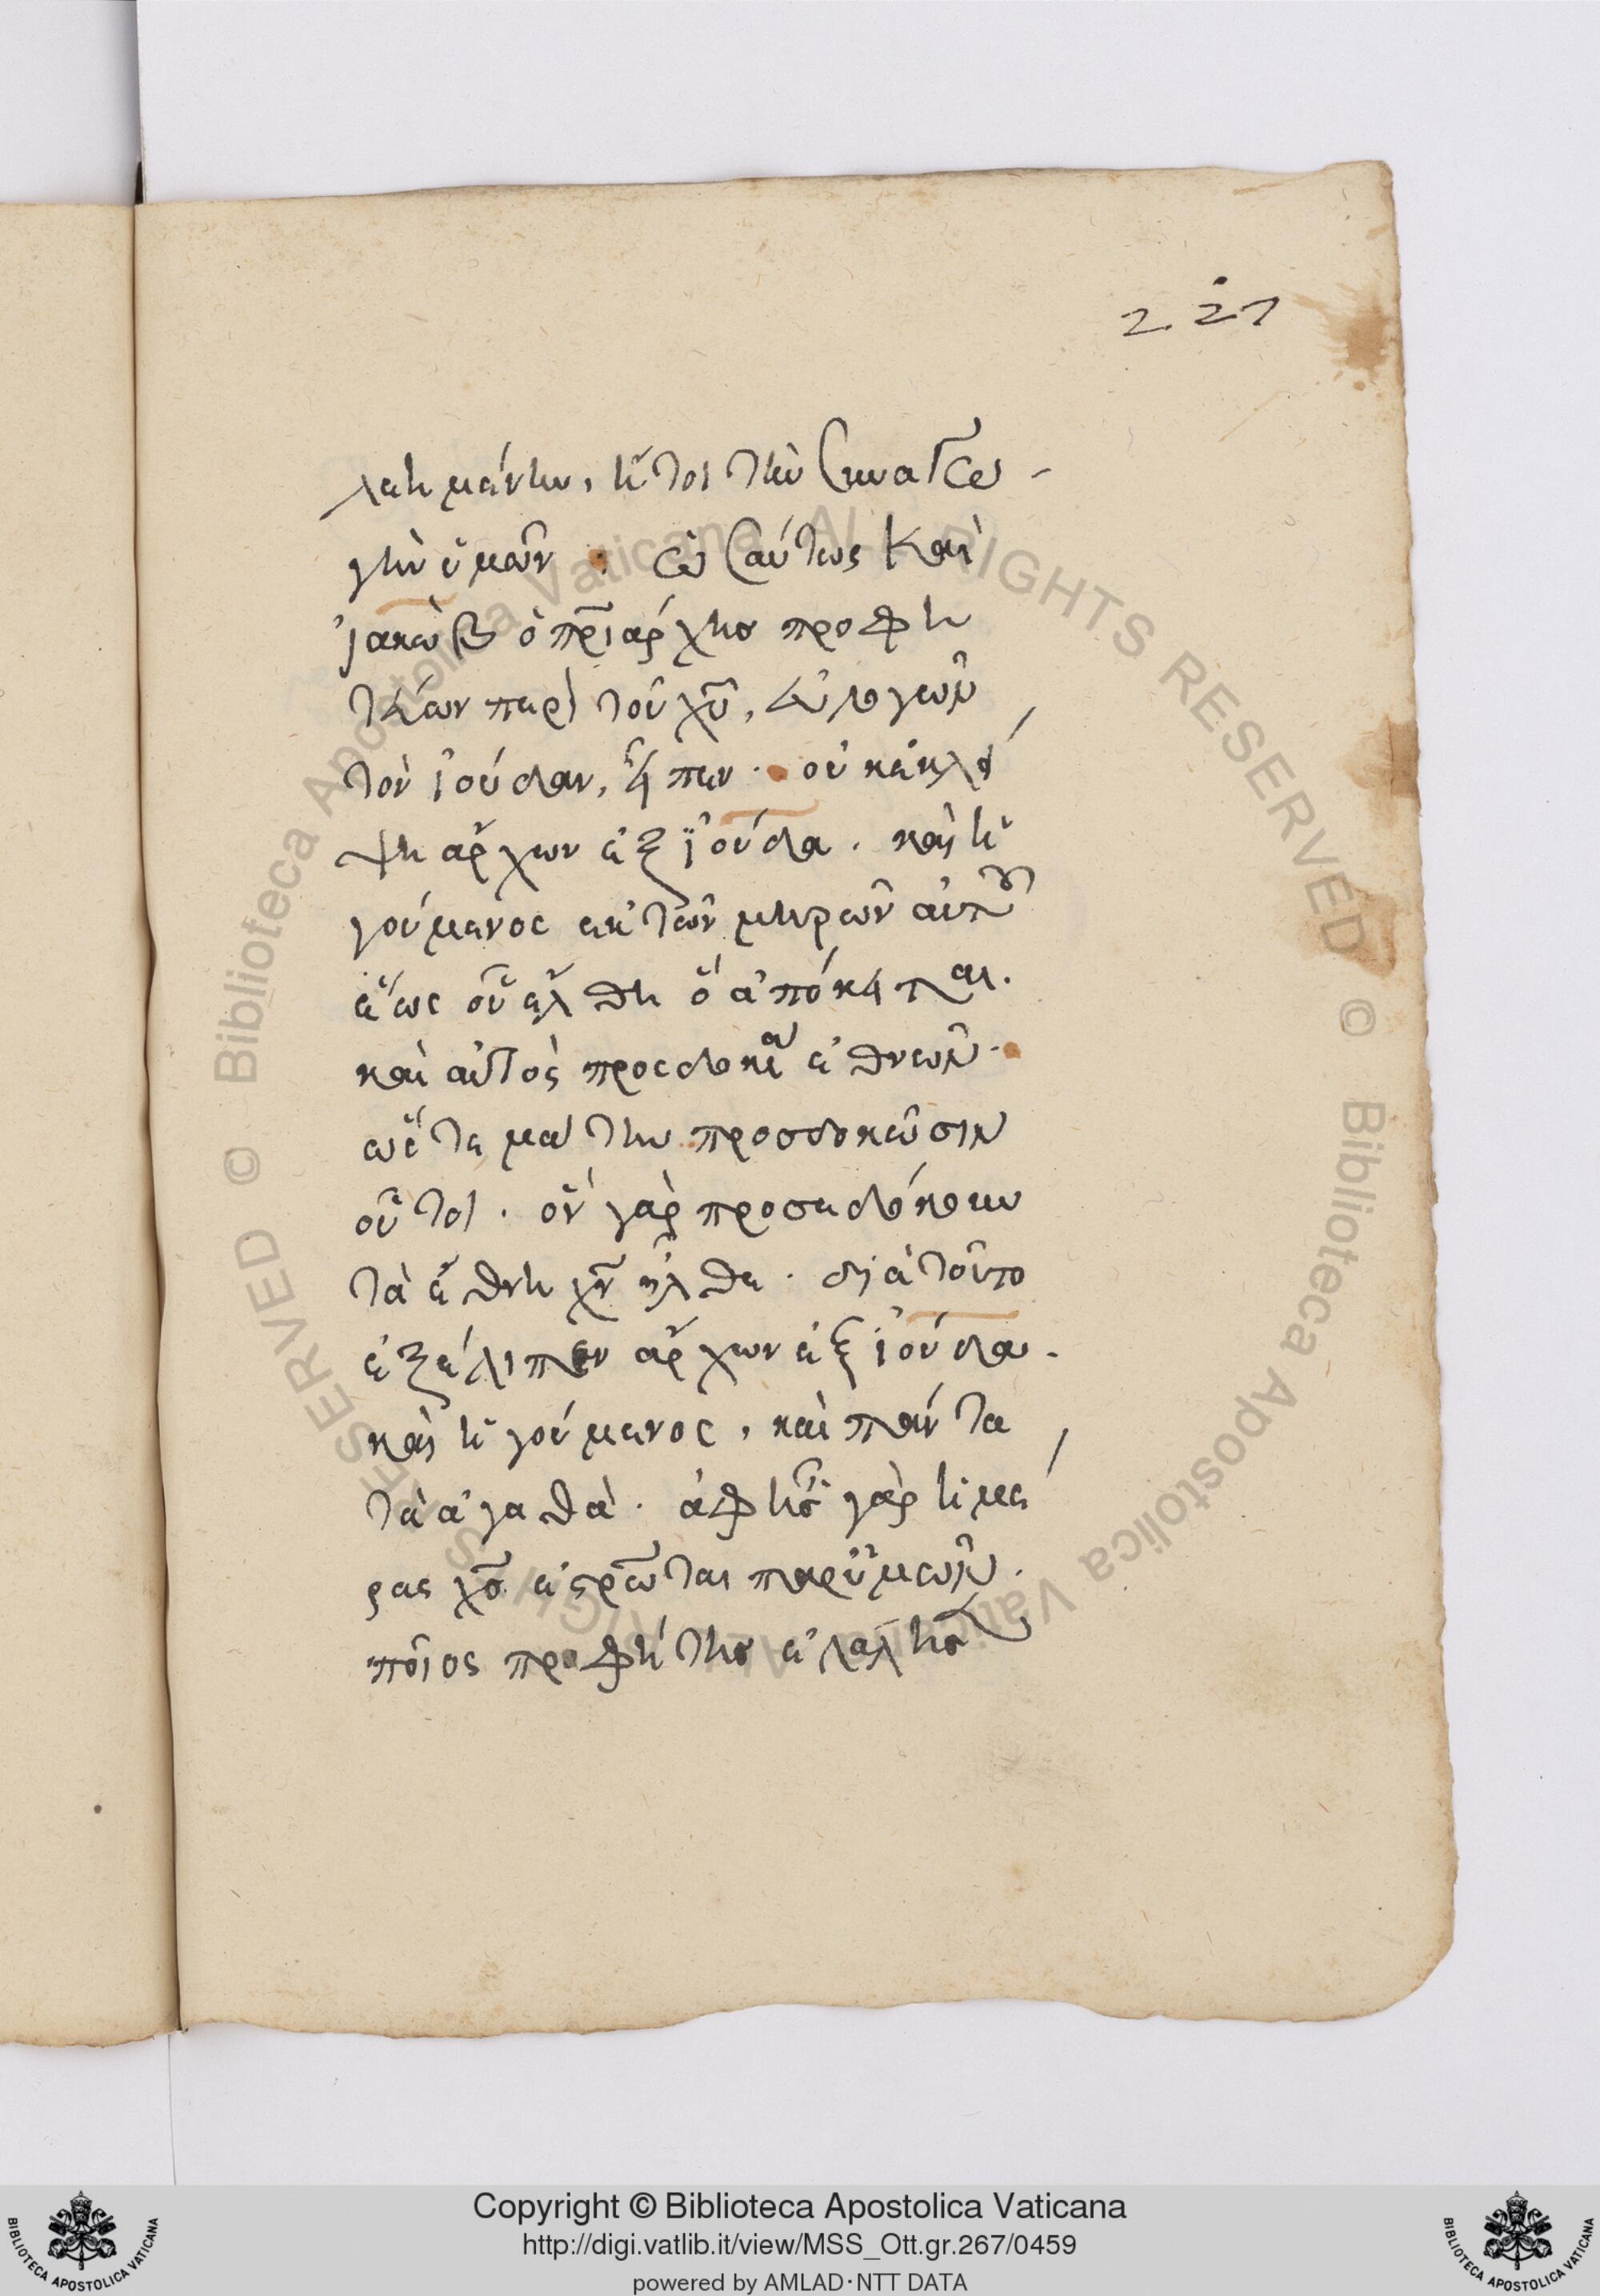 221
λεημένην, ἤτοι τὴν συναγω-
γὴν ὑμῶν. ὡσαύτως καὶ
ἰακὼβ ὁ πριάρχησ προφη
τεύων περὶ τοῦ χυ, εὐλογῶν
τὸν ἰούδαν, εἶπεν. οὐκ ἐκλεί
ψη ἄρχων ἐξ ἰούδα. καὶ ἡ
γούμενος ἐκ τῶν μηρῶν αὐτοῦ
ἕως οὗ ἔλθη ὃ ἀπόκειται.
καὶ αὐτὸς προςδοκία ἐθνῶν.
ὥςτε μάτην προσδοκῶσιν
οὗτοι. ὃν γὰρ προσεδόκουν
τὰ ἔθνη χν ἦλθε. διὰ τοῦτο
ἐξέλιπεν ἄρχων ἐξ ἰούδα.
καὶ ἡγούμενος, καὶ πάντα
τὰ ἀγαθά. ἀφῆς γὰρ ἡμέ
ρας χσ ἐςρωται παρ ὑμῶν.
ποῖος προφήτησ ἐλάλησεν
Copyright © Biblioteca Apostolica Vaticana
http://digi.vatlib.it/view/MSS_Ott.gr.267/0459
powered by AMLAD·NTT DATA
BIBLIOTECA APOSTOLICA VATICANA
BIBLIOTECA APOSTOLICA VATICANA
© Biblioteca Apostolica Vaticana ALL RIGHTS RESERVED
© Biblioteca Apostolica Vaticana ALL RIGHTS RESERVED